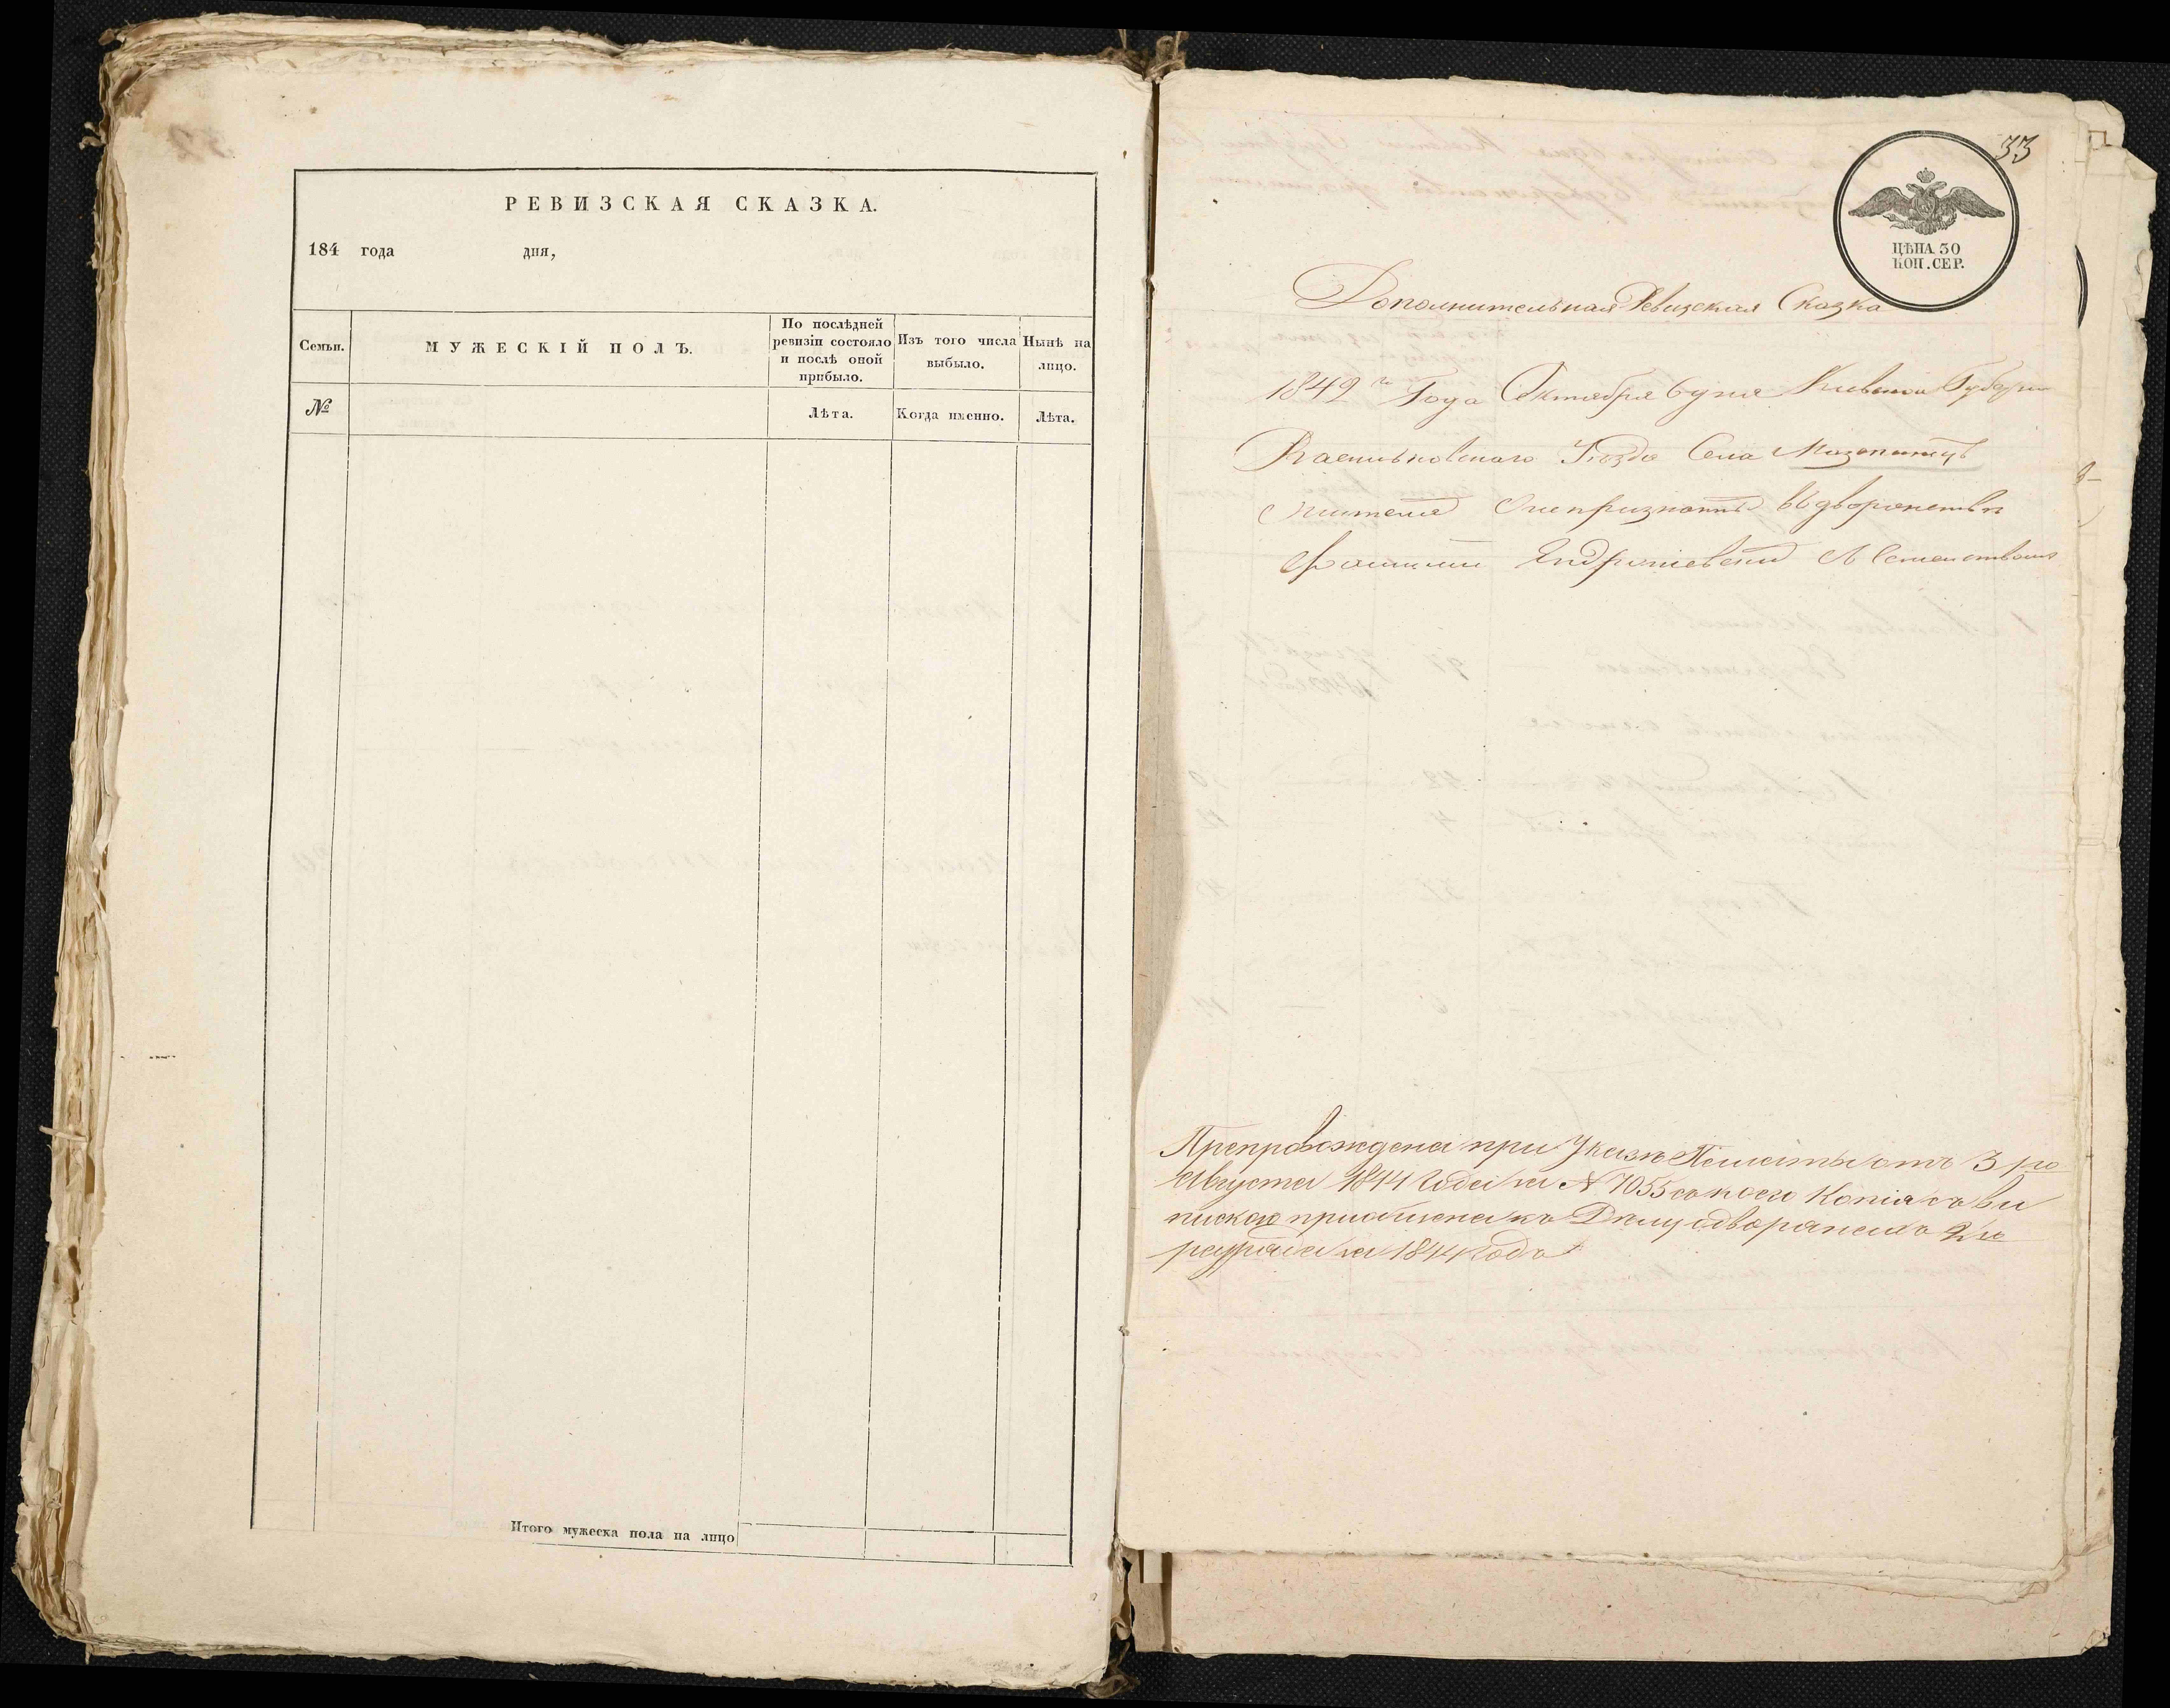 РЕВИЗСКАЯ СКАЗКА.
184 года дня,
Семьи.
МУЖЕСКІЙ ПОЛЪ.
По послѣдней
ревизіи состояло
и послѣ оной
прибыло.
Изъ того числа
выбыло.
Нынѣ на
лицо.
№
Лѣта.
Когда именно.
Лѣта.
Итого мужеска пола на лицо
33
ЦѢНА 30
КОП. СЕР.
Дополнительная Ревизская Сказка
1842го Года Октября 6 дня Киевской Губерни
Васильковского Уѣзда Села Мазепинцъ
Жителя Непризнанны въ дворянствѣ
Фамилии
Препровождена при Указѣ Палаты отъ 3го
Августа 1844 Года за № 7055 съ коего Копія съ ви
пискою приобщена къ Дѣлу о дворянахъ 2го
разряда за 1844 Годъ